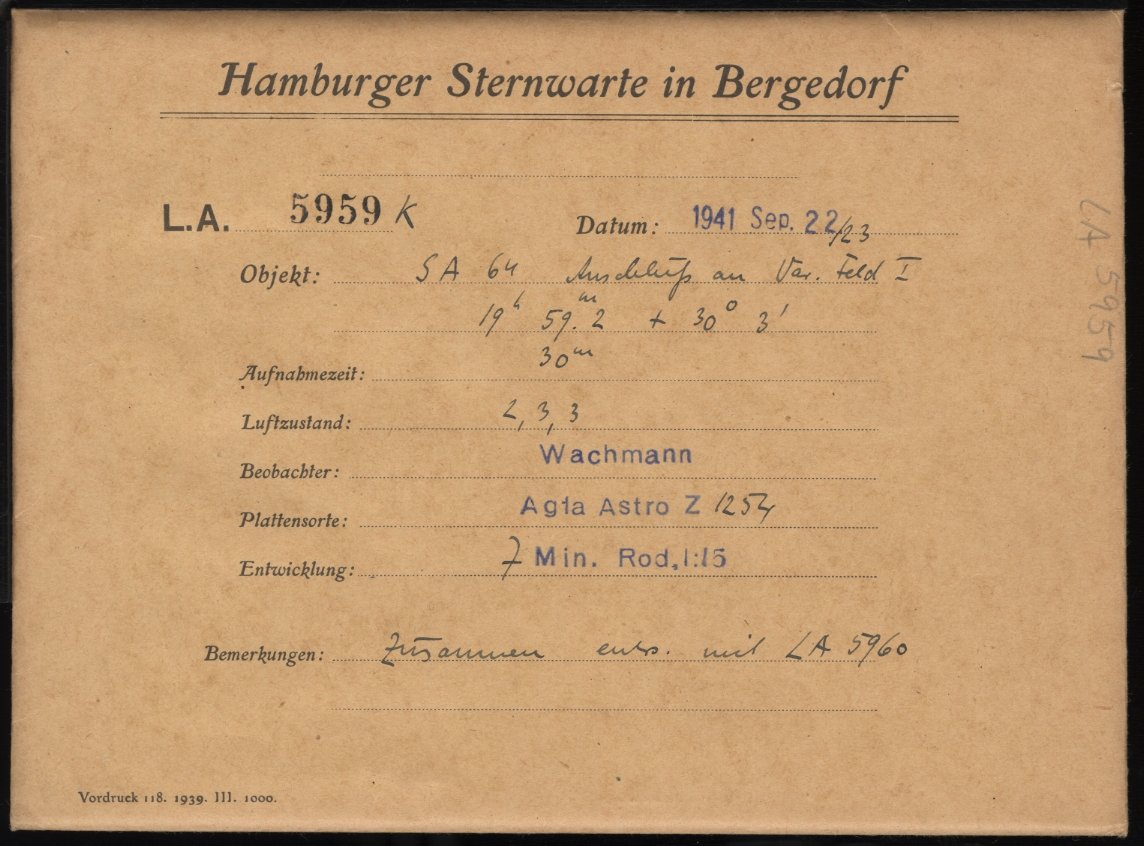 Hamburger Sternwarte in Bergedorf
L.A. 5959 K
Datum: 1941 Sep. 22/23
Objekt: SA 64 Anschluß an Var. Feld I
19h 59m.2 + 30° 3'
Aufnahmezeit: 30m
Luftzustand: 2, 3, 3
Beobachter: Wachmann
Plattensorte: Agfa Astro Z 1254
Entwicklung: 7 Min. Rod. 1:15
Bemerkungen: Zusammen entw. mit LA 5960
Vordruck 118. 1939. III. 1000.
LA 5959